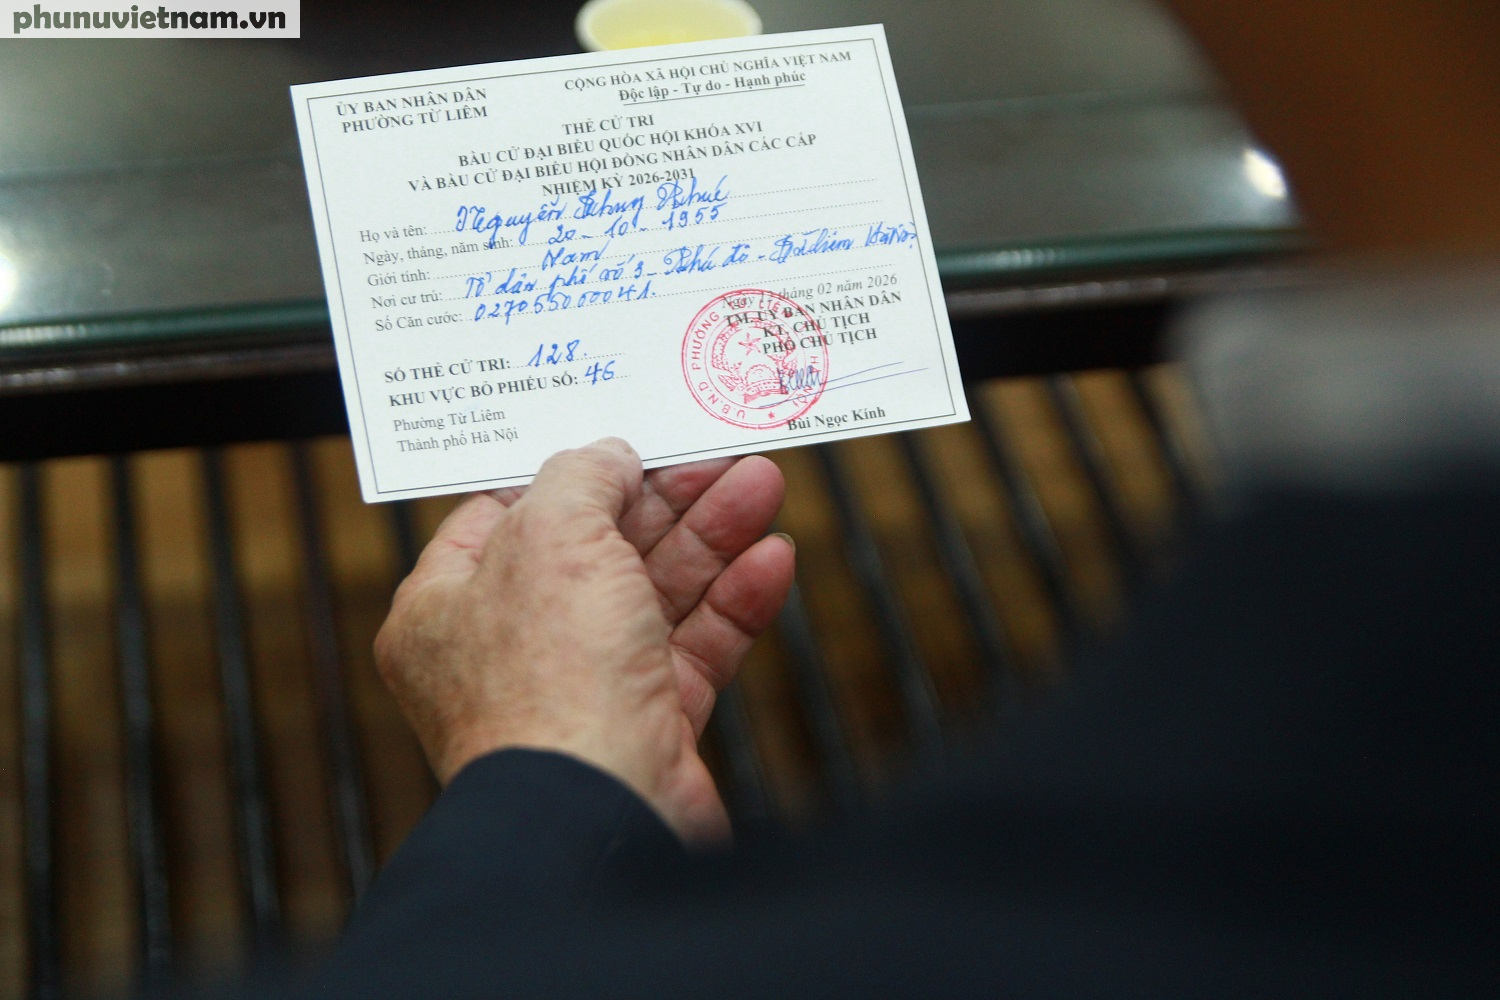 phunuvietnam.vn
ỦY BAN NHÂN DÂN
PHƯỜNG TỪ LIÊM
CỘNG HÒA XÃ HỘI CHỦ NGHĨA VIỆT NAM
Độc lập - Tự do - Hạnh phúc
THẺ CỬ TRI
BẦU CỬ ĐẠI BIỂU QUỐC HỘI KHÓA XVI
VÀ BẦU CỬ ĐẠI BIỂU HỘI ĐỒNG NHÂN DÂN CÁC CẤP
NHIỆM KỲ 2026-2031
Họ và tên: Nguyễn Phú
Ngày, tháng, năm sinh: 20-10-1955
Giới tính: Nam
Nơi cư trú: Tổ dân phố số 3 - Phú đô - Hà Nội
Số Căn cước: 027055000041.
Ngày 11 tháng 02 năm 2026
TM. ỦY BAN NHÂN DÂN
KT. CHỦ TỊCH
PHÓ CHỦ TỊCH
SỐ THẺ CỬ TRI: 128.
KHU VỰC BỎ PHIẾU SỐ: 46
Phường Từ Liêm
Thành phố Hà Nội
U.B.N.D PHƯỜNG TỪ LIÊM
Bùi Ngọc Kính